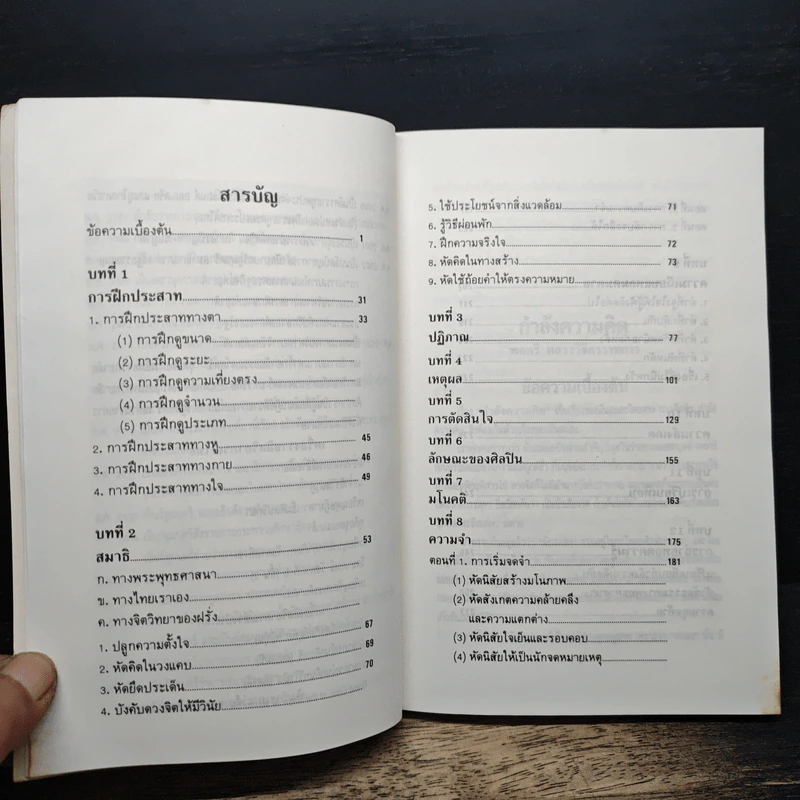 สารบัญ
ข้อความเบื้องต้น 1
บทที่ 1
การฝึกประสาท 31
1. การฝึกประสาททางตา 33
(1) การฝึกดูขนาด
(2) การฝึกดูระยะ
(3) การฝึกดูความเที่ยงตรง
(4) การฝึกดูจำนวน
(5) การฝึกดูประเภท
2. การฝึกประสาททางหู 45
3. การฝึกประสาททางกาย 46
4. การฝึกประสาททางใจ 49
บทที่ 2
สมาธิ 53
ก. ทางพระพุทธศาสนา
ข. ทางไทยเราเอง
ค. ทางจิตวิทยาของฝรั่ง
1. ปลูกความตั้งใจ 67
2. หัดคิดในวงแคบ 69
3. หัดยึดประเด็น 70
4. บังคับดวงจิตให้มีวินัย
5. ใช้ประโยชน์จากสิ่งแวดล้อม 71
6. รู้วิธีผ่อนพัก
7. ฝึกความจริงใจ 72
8. หัดคิดในทางสร้าง 73
9. หัดใช้ถ้อยคำให้ตรงความหมาย
บทที่ 3
ปฏิภาณ 77
บทที่ 4
เหตุผล 101
บทที่ 5
การตัดสินใจ 129
บทที่ 6
ลักษณะของศิลปิน 155
บทที่ 7
มโนคติ 163
บทที่ 8
ความจำ 175
ตอนที่ 1. การเริ่มจดจำ 181
(1) หัดนิสัยสร้างมโนภาพ
(2) หัดสังเกตความคล้ายคลึง
และความแตกต่าง
(3) หัดนิสัยใจเย็นและรอบคอบ
(4) หัดนิสัยให้เป็นนักจดหมายเหตุ